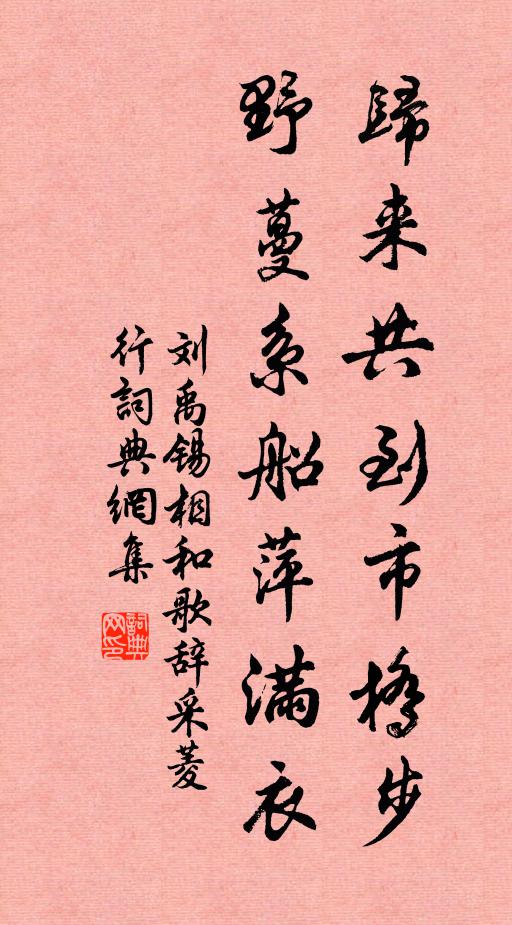 歸来共到市橋步
野蔓系船萍滿衣
刘禹锡相和歌辞采菱
行詞典網集
詞典
网印